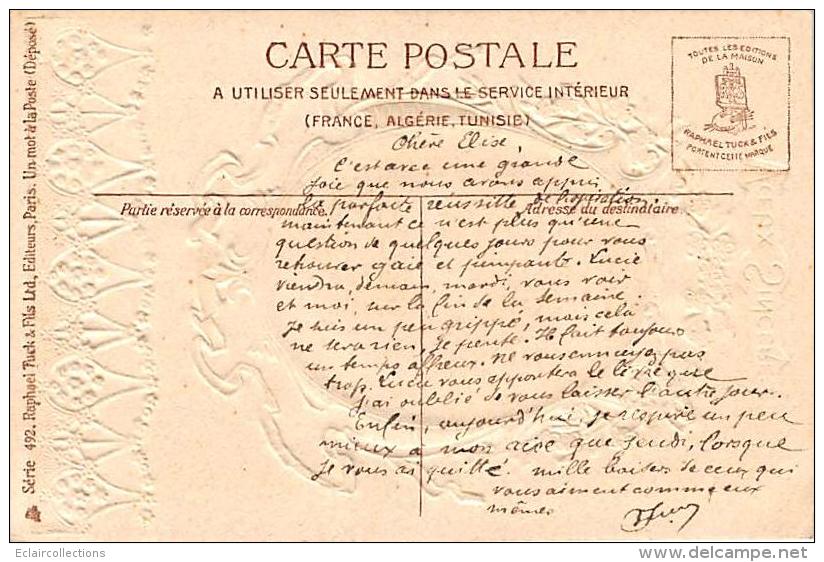 CARTE POSTALE
A UTILISER SEULEMENT DANS LE SERVICE INTÉRIEUR
(FRANCE, ALGÉRIE, TUNISIE)
TOUTES LES EDITIONS
DE LA MAISON
RAPHAEL TUCK & FILS
PORTENT CETTE MARQUE
Série 492. Raphael Tuck & Fils Ltd., Editeurs, Paris. Un mot à la Poste (Déposé)
Partie réservée à la correspondance.
Adresse du destinataire.
Chère Elise,
C'est avec une grande
joie que nous avons appris
la parfaite réussite de l'opération,
maintenant ce n'est plus qu'une
question de quelques jours pour vous
retrouver gaie et pimpante. Lucie
viendra, demain, mardi, vous voir
et moi, sur la fin de la semaine.
Je suis un peu grippé, mais cela
ne sera rien, je pense. Il fait toujours
un temps affreux. Ne vous ennuyez pas
trop. Lucie vous apportera le livre que
j'ai oublié de vous laisser l'autre jour.
Enfin, aujourd'hui, je respire un peu
mieux à mon aise que jeudi, lorsque
je vous ai quitté. mille baisers de ceux qui
vous aiment comme eux
mêmes
Eclaircollections
delcampe.net